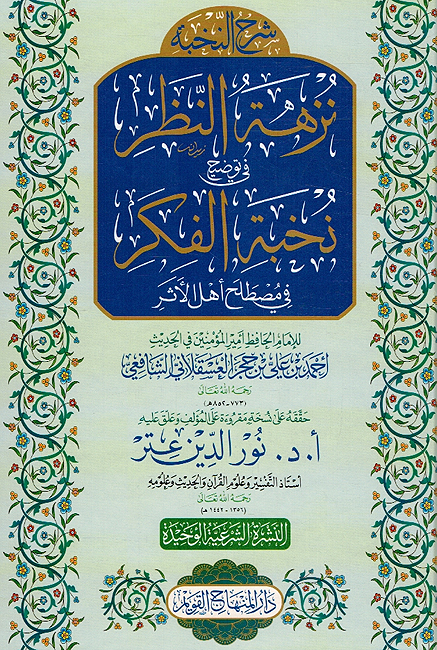 شرح النخبة
نزهة النظر
في توضيح
نخبة الفكر
في مصطلح أهل الأثر
للإمام الحافظ أمير المؤمنين في الحديث
أحمد بن علي بن حجر العسقلاني الشافعي
رحمه الله تعالى
(٧٧٣-٨٥٢هـ)
حققه على نسخة مقروءة على المؤلف وعلق عليه
أ. د. نور الدين عتر
أستاذ التفسير وعلوم القرآن والحديث وعلومه
رحمه الله تعالى
(١٣٥٦ - ١٤٤٢ هـ)
النشرة الشرعية الوحيدة
دار المنهاج القويم